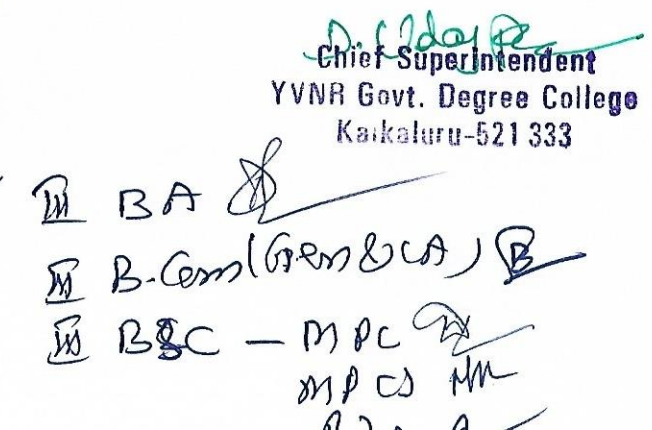 Chief Superintendent
YVNR Govt. Degree College
Kaikaluru-521 333
III BA
III B.Com (Gen & CA)
III BSC - MPC
MPCS